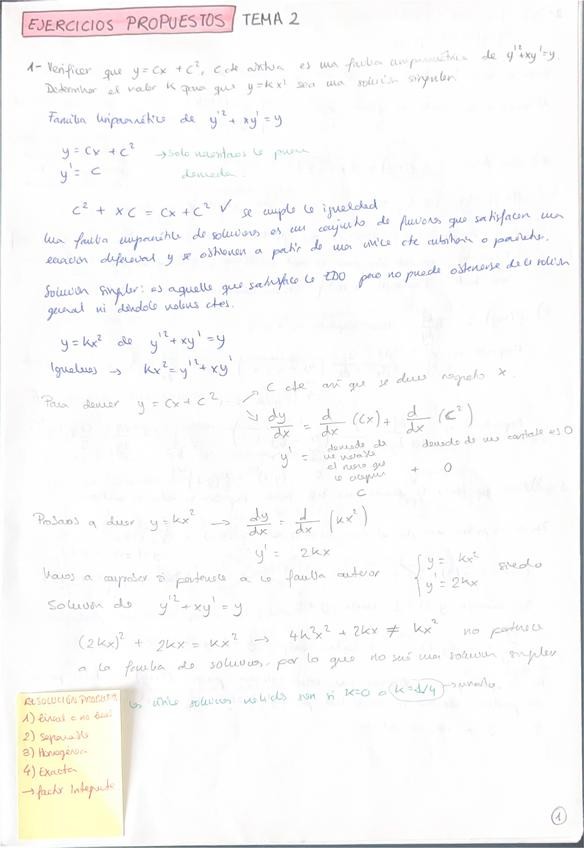 EJERCICIOS PROPUESTOS TEMA 2
1- Verificar que y = Cx + C², C cte es una familia uniparamétrica de y'² + xy' = y.
Determinar el valor k para que y = kx² sea una solución singular.
Familia uniparamétrica de y'² + xy' = y
y = Cx + C² → solo necesitamos la primera
y' = C derivada.
C² + xC = Cx + C² ✓ se cumple la igualdad
Una familia uniparamétrica de soluciones es un conjunto de funciones que satisfacen una
ecuación diferencial y se obtienen a partir de una única cte arbitraria o parámetro.
Solución singular: es aquella que satisface la EDO pero no puede obtenerse de la solución
general ni dándole valores ctes.
y = kx² de y'² + xy' = y
Igualamos → kx² = y'² + xy'
C cte así que se deriva respecto x.
Para derivar y = Cx + C²
dy/dx = d/dx (Cx) + d/dx (C²)
y' = derivada de el número que C + 0 derivada de una constante es 0
Pasamos a derivar y = kx² → dy/dx = d/dx (kx²)
y' = 2kx
Vamos a comprobar si pertenece a la familia anterior { y = kx² y' = 2kx siendo
Solución de y'² + xy' = y
(2kx)² + 2kx = kx² → 4k²x² + 2kx ≠ kx² no pertenece
a la familia de soluciones, por lo que no será una solución singular.
soluciones válidas son si k=0 o k=1/4 →
RESOLUCIÓN
1) lineal o no lineal
2) Separable
3) Homogénea
4) Exacta
→ factor Integrante
1